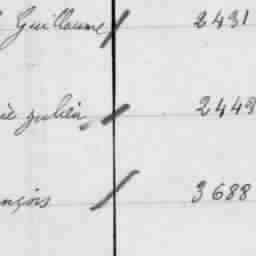 Guillaume 2431
julien 2449
nçois 3688